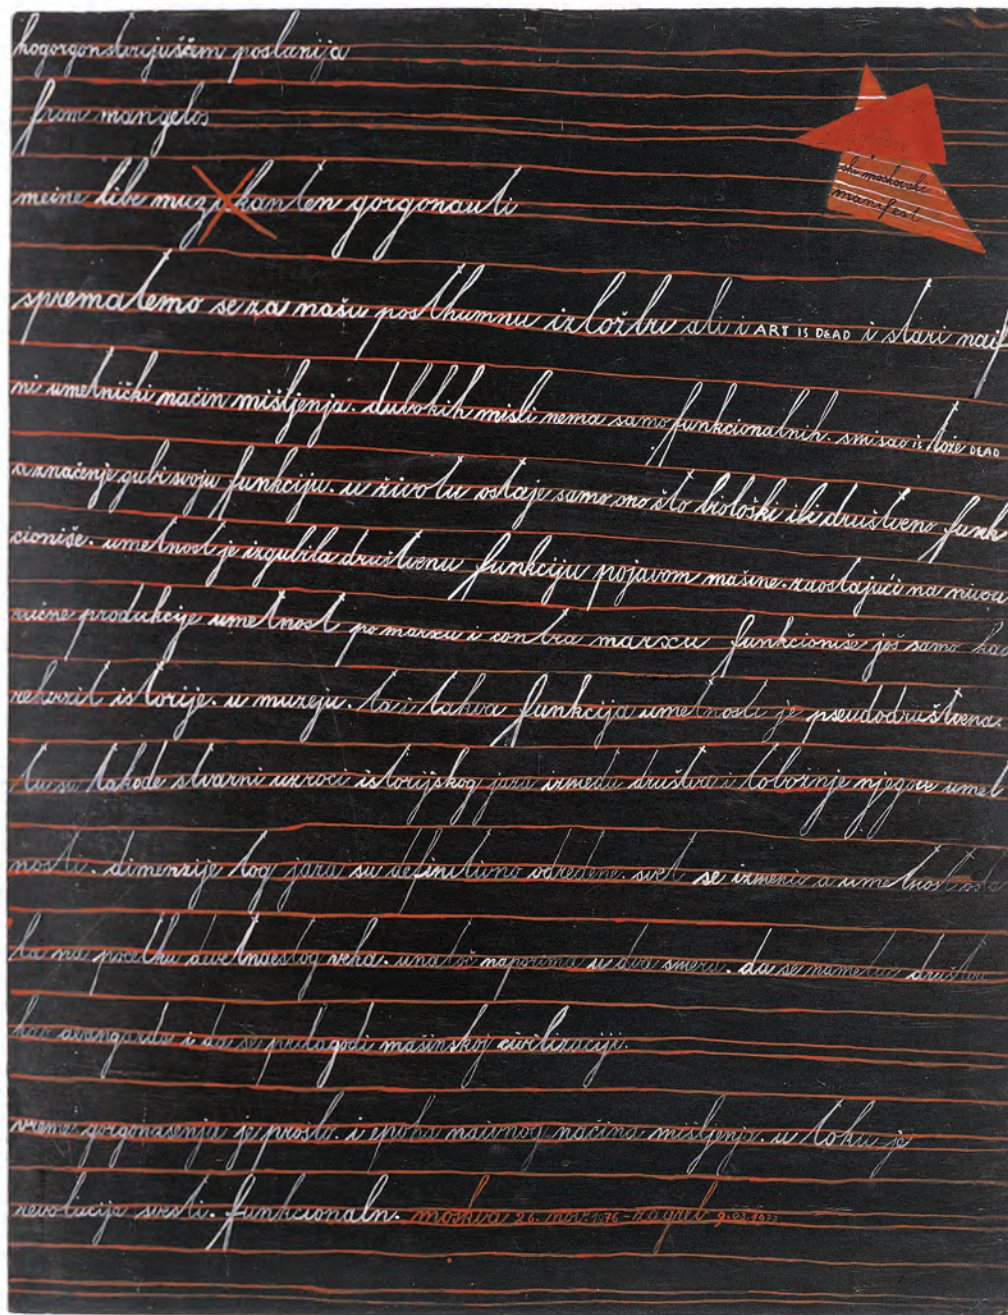 hogorgonstvujuščim poslanija
from mangelos
ili moskovski
manifest
meine libe muzikanten gorgonauti
spremaćemo se za našu posthumnu izložbu ali i ART IS DEAD i stari naiv
ni umetnički način mišljenja. dubokih misli nema samo funkcionalnih. smisao is tože DEAD
a značenje gubi svoju funkciju. u životu ostaje samo ono što biološki ili društveno funk
cioniše. umetnost je izgubila društvenu funkciju pojavom mašine. zaostajući na nivou
ručne produkcije umetnost po marxu i contra marxu funkcioniše još samo kao
rekvizit istorije. u muzeju. ta i takva funkcija umetnosti je pseudodruštvena.
tu su takođe stvarni uzroci istorijskog jaza između društva i tobožnje njegove umet
nosti. dimenzije tog jaza su definitivno određene. svet se izmenio a umetnost osta
la na početku devetnaestog veka. unatoč naporima u dva smera. da se nametne društvu
kao avangarda i da se prilagodi mašinskoj civilizaciji.
vreme gorgonisenja je prošlo. i epoha naivnog načina mišljenja. u toku je
revolucija svesti. funkcionaln. moskva 26. nov. 1976 - zagreb 9.03.1977